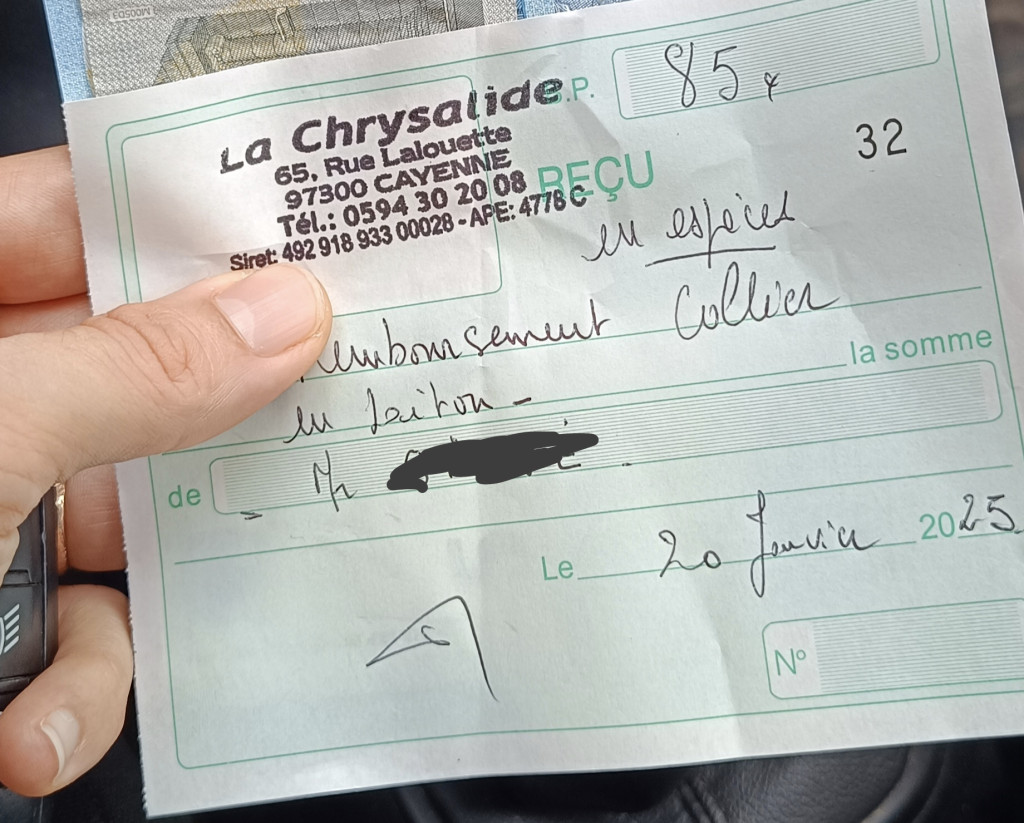 La Chrysalide
65, Rue Lalouette
97300 CAYENNE
Tél.: 0594 30 20 08
Siret: 492 918 933 00028 - APE: 4778 C
B.P. 85
32
REÇU
en espèces
Remboursement Collier
la somme
en laiton -
de Mr
Le 20 Janvier 2025
N°